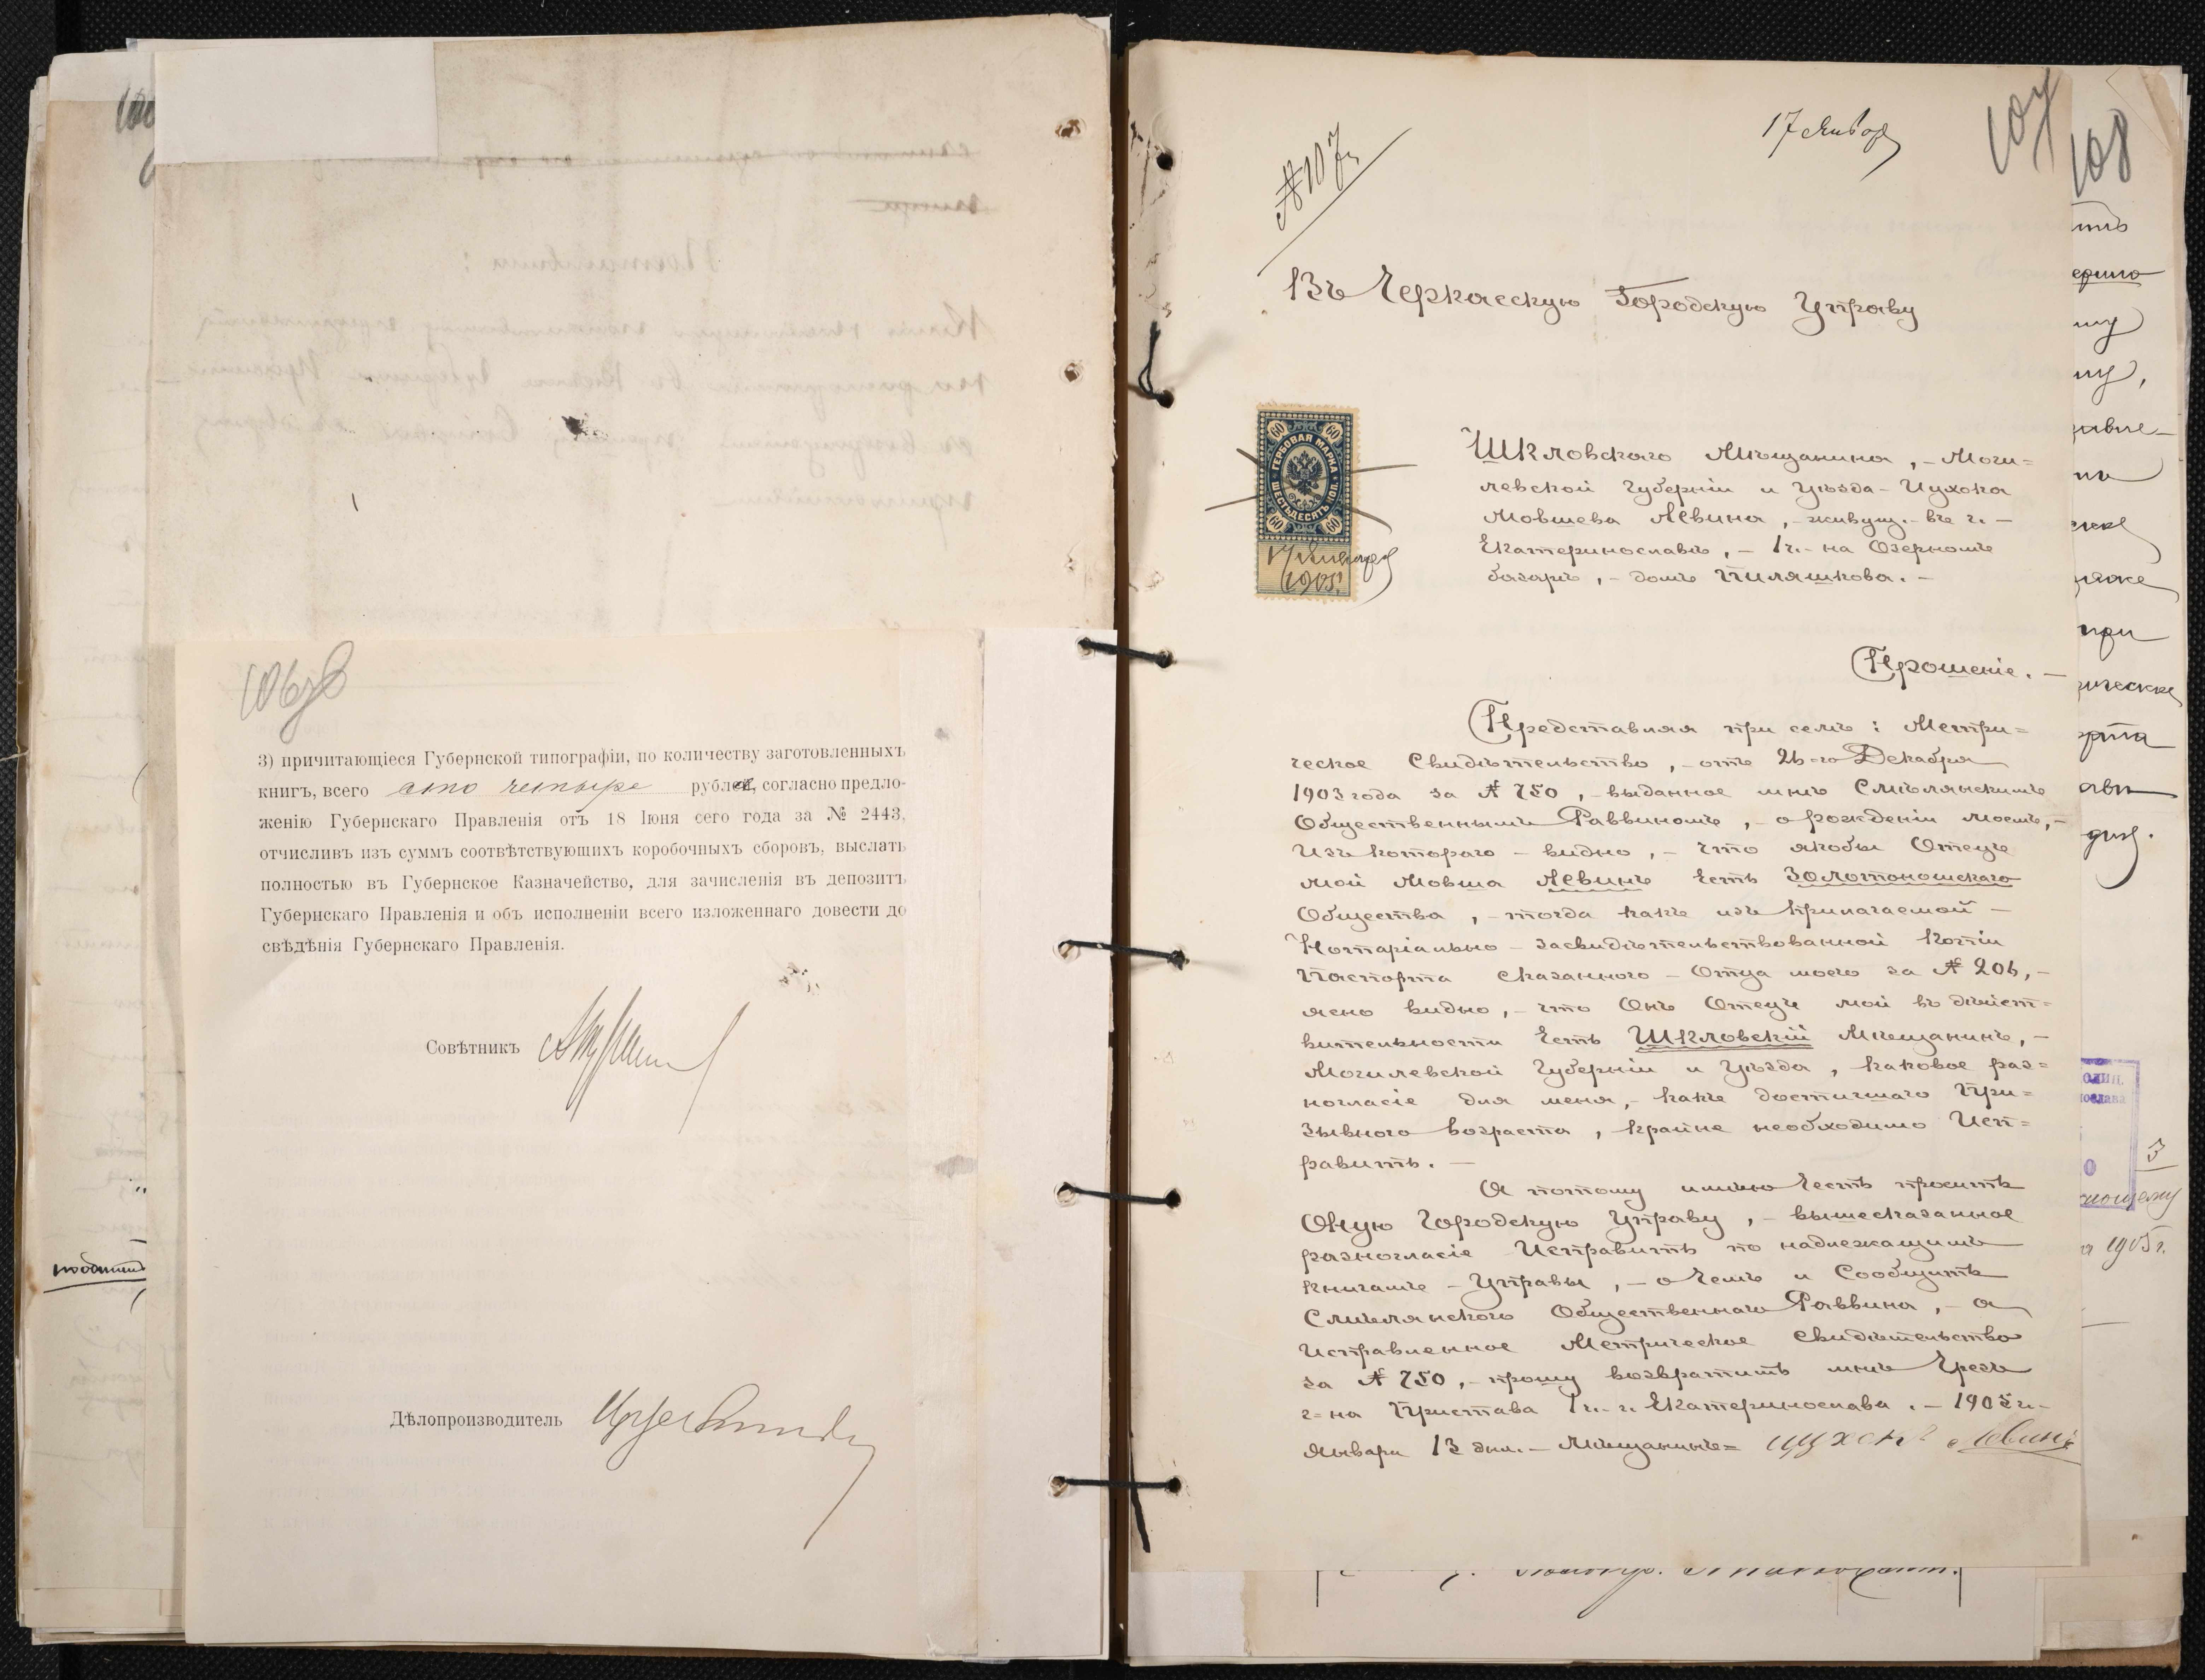 106 об
3) причитающіеся Губернской типографіи, по количеству заготовленныхъ
книгъ, всего сто четыре рубля, согласно предло-
женію Губернскаго Правленія отъ 18 Іюня сего года за № 2443,
отчисливъ изъ суммъ соотвѣтствующихъ коробочныхъ сборовъ, выслать
полностью въ Губернское Казначейство, для зачисленія въ депозитъ
Губернскаго Правленія и объ исполненіи всего изложеннаго довести до
свѣдѣнія Губернскаго Правленія.
Совѣтникъ
Дѣлопроизводитель
107
108
17 Января
№ 107
Въ Черкасскую Городскую Управу
60 60
ГЕРБОВАЯ МАРКА
ШЕСТЬДЕСЯТЪ КОП.
60 60
17 Января
1905г.
Шкловскаго Мѣщанина, – Моги=
левской Губерніи и Уѣзда – Цухока
Мовшева Левина, – живущ. – въ г. –
Екатеринославѣ, – 1ч. – на Озерномъ
базарѣ, – домъ Пиляшкова. –
Прошеніе. –
Представляя при семъ: Метри=
ческое Свидѣтельство, – отъ 26-го Декабря
1903 года за № 750, – выданное мнѣ Смѣлянскимъ
Общественнымъ Раввиномъ, – о рожденіи моемъ, –
изъ котораго – видно, – что якобы Отецъ
мой Мовша Левинъ Есть Золотоношскаго
Общества, – тогда какъ изъ прилагаемой –
Нотаріально – засвидѣтельствованной Копіи
Паспорта сказанного – Отца моего за № 206, –
ясно видно, – что Онъ Отецъ мой въ дѣйст=
вительности Есть Шкловскій Мѣщанинъ, –
Могилевской Губерніи и Уѣзда, каковое раз=
ногласіе для меня, – какъ достигшаго При=
зывного возраста, крайне необходимо Исп=
равить. –
А потому имѣю Честь просить
Оную Городскую Управу, – вышесказанное
разногласіе Исправить по надлежащимъ
книгамъ – Управы, – о Чемъ и Сообщить
Смѣлянскаго Общественнаго Раввина, – а
Исправленное Метрическое Свидѣтельство
за № 750, – прошу возвратить мнѣ Чрезъ
г=на Пристава 1ч. – г. Екатеринослава. – 1905 г. –
Января 13 дня. – Мѣщанинъ= Цухокъ Левинъ